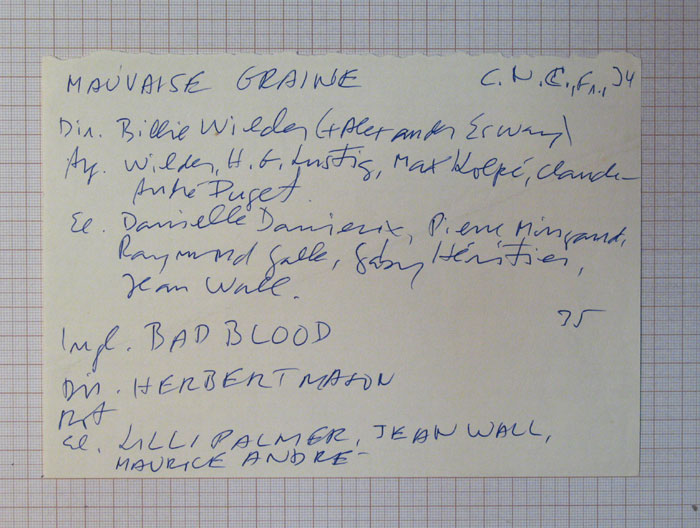 MAUVAISE GRAINE C.N.C., Fr., 34
Dir. Billie Wilder (+Alexander Esway)
Ag. Wilder, H.G. Lustig, Max Kolpé, Claude-
André Puget.
El. Danielle Darrieux, Pierre Mingand,
Raymond Galle, Gaby Héritier,
Jean Wall.
35
Ingl. BAD BLOOD
Dir. HERBERT MASON
El. LILLI PALMER, JEAN WALL,
MAURICE ANDRE-